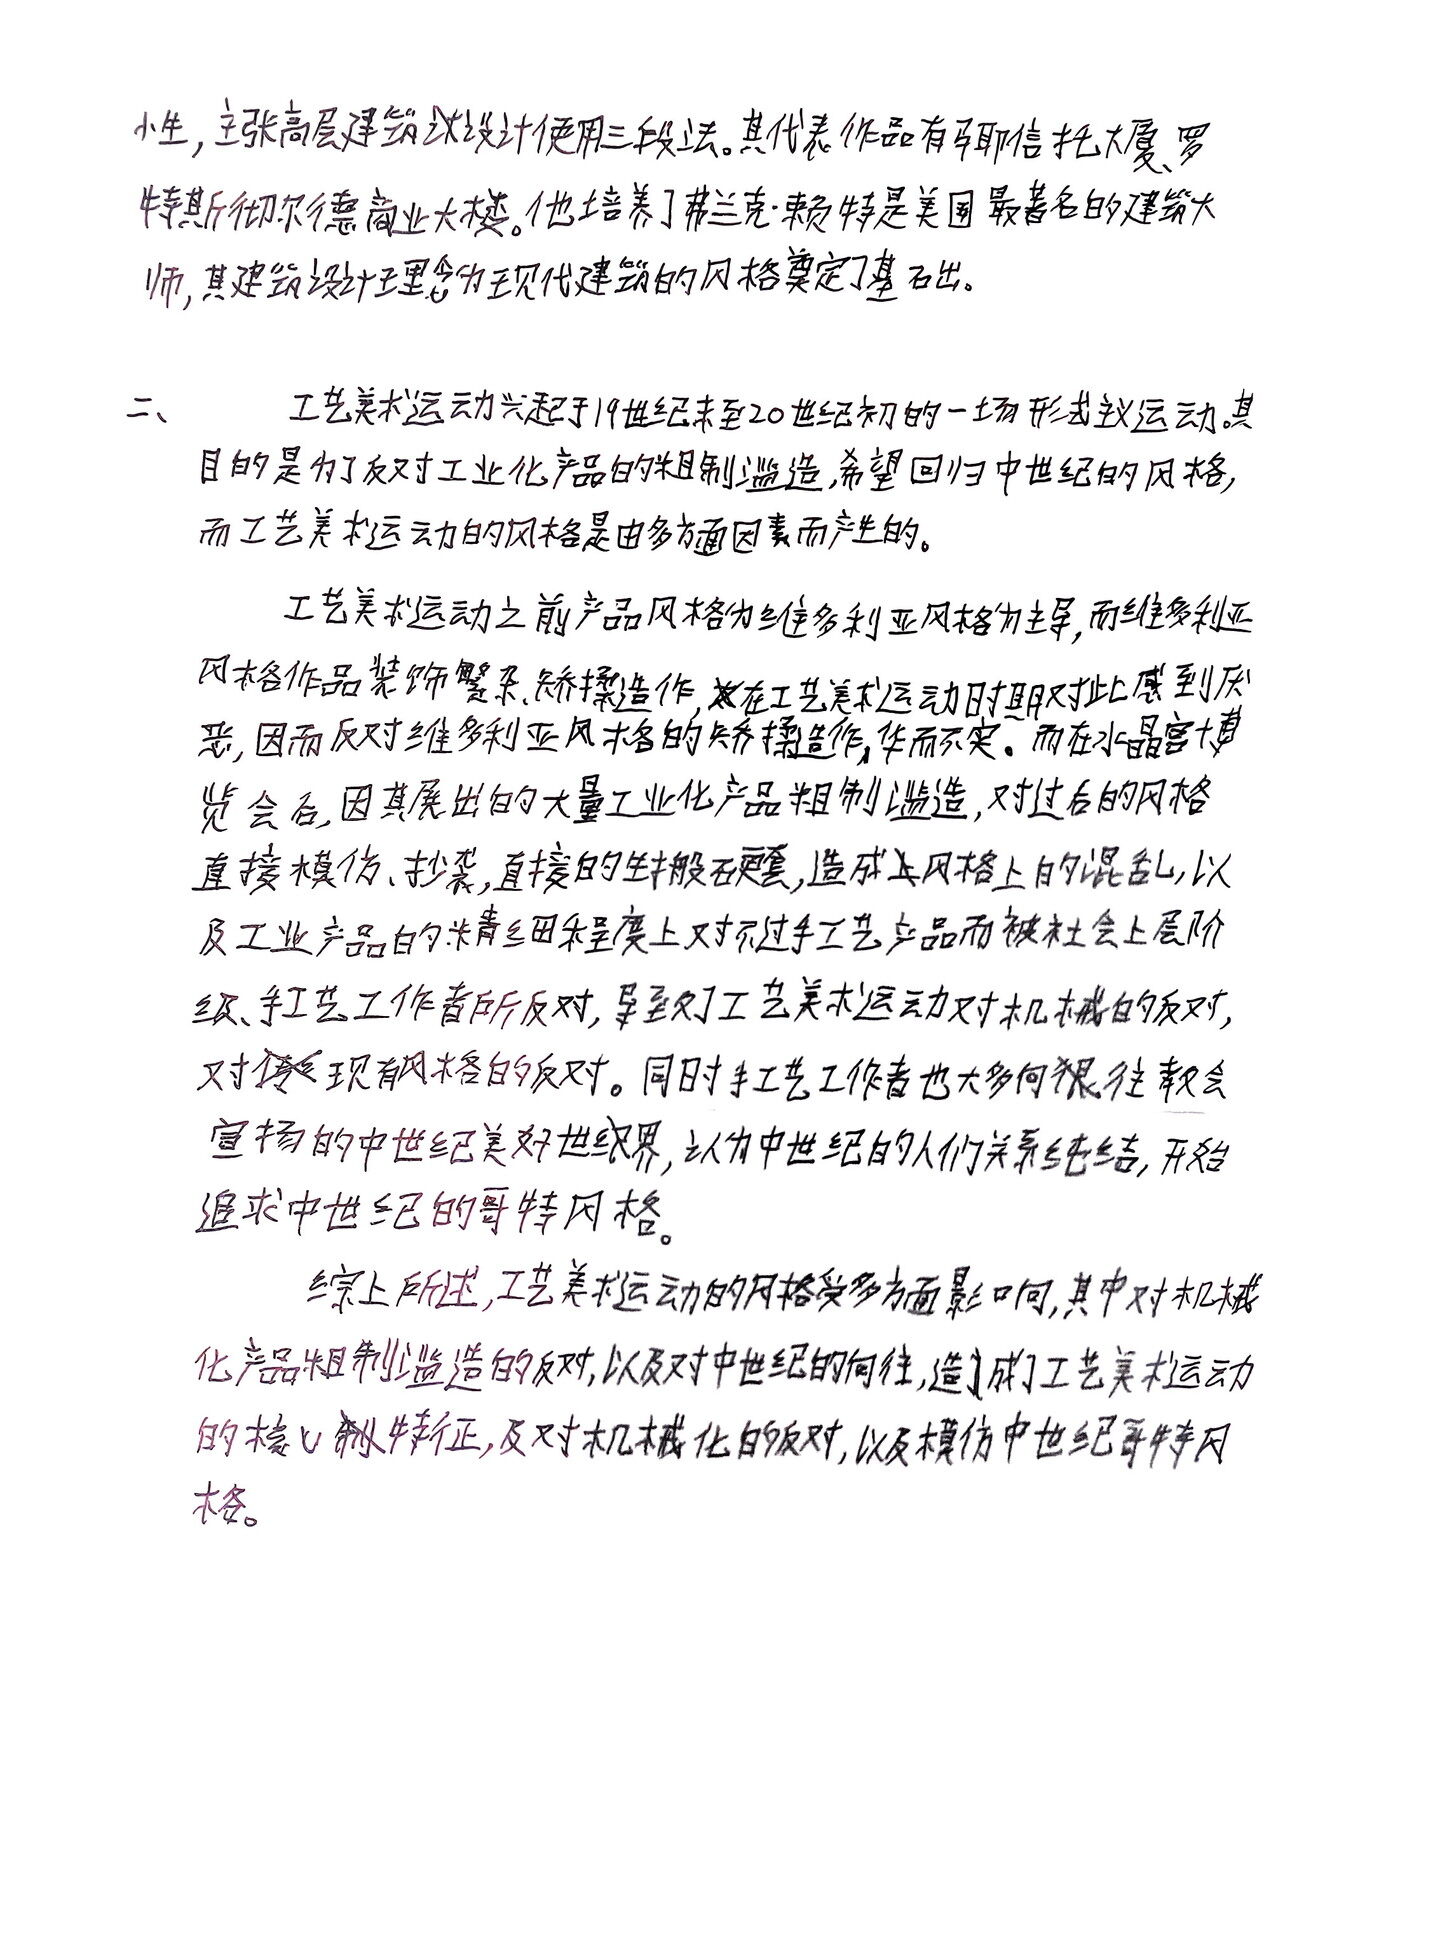 小生，主张高层建筑设计使用三段法。其代表作品有耶信托大厦、罗
特斯彻尔德商业大楼。他培养了弗兰克·赖特是美国最著名的建筑大
师，其建筑设计理念为现代建筑的风格奠定了基石出。
二、 工艺美术运动兴起于19世纪末至20世纪初的一场形式主议运动。其
目的是为了反对工业化产品的粗制滥造，希望回归中世纪的风格，
而工艺美术运动的风格是由多方面因素而产生的。
工艺美术运动之前产品风格为维多利亚风格为主导，而维多利亚
风格作品装饰繁杂、矫揉造作，在工艺美术运动时期对此感到厌
恶，因而反对维多利亚风格的矫揉造作，华而不实。而在水晶宫博
览会后，因其展出的大量工业化产品粗制滥造，对过后的风格
直接模仿、抄袭，直接的生搬硬套，造成风格上的混乱，以
及工业产品的精细程度上对不过手工艺产品而被社会上层阶
级、手工艺工作者所反对，导致了工艺美术运动对机械的反对，
对现有风格的反对。同时手工艺工作者也大多向往教会
宣扬的中世纪美好世界，认为中世纪的人们关系纯结，开始
追求中世纪的哥特风格。
综上所述，工艺美术运动的风格受多方面影响，其中对机械
化产品粗制滥造的反对，以及对中世纪的向往，造成了工艺美术运动
的核心特征，及对机械化的反对，以及模仿中世纪哥特风
格。